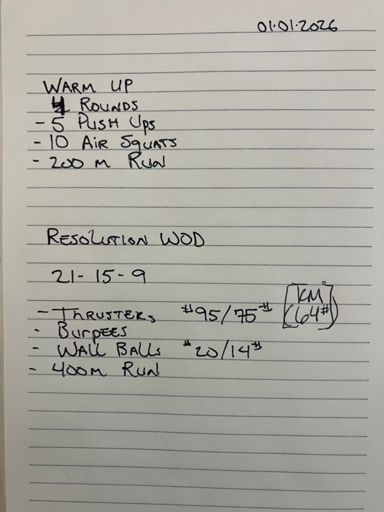 01.01.2026
WARM UP
4 ROUNDS
- 5 PUSH UPS
- 10 AIR SQUATS
- 200 M RUN
RESOLUTION WOD
21-15-9
- THRUSTERS #95/75# [KM (64#)]
- BURPEES
- WALL BALLS #20/14#
- 400M RUN